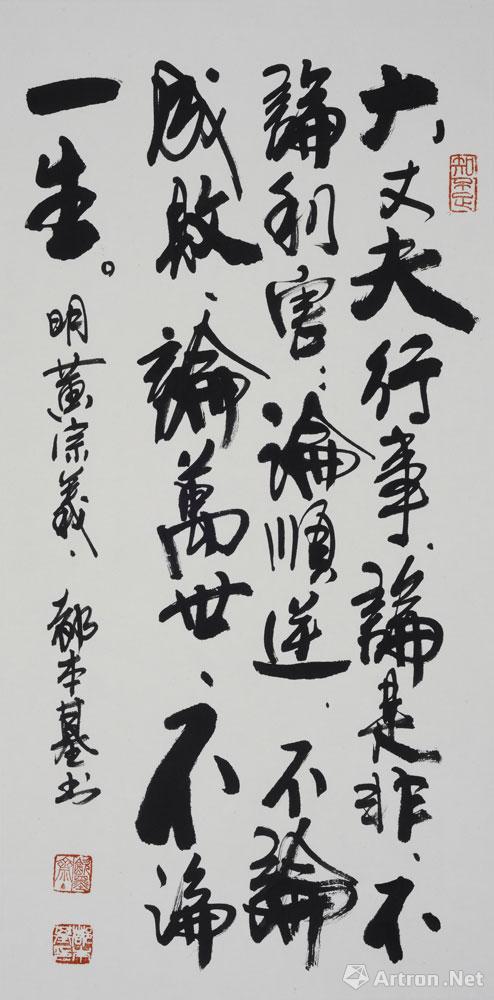 大丈夫行事、論是非、不
論利害;論順逆、不論
成敗、論萬世、不論
一生。
明黄宗羲、郝本基书
知不足
雅昌艺术网
Artron.Net